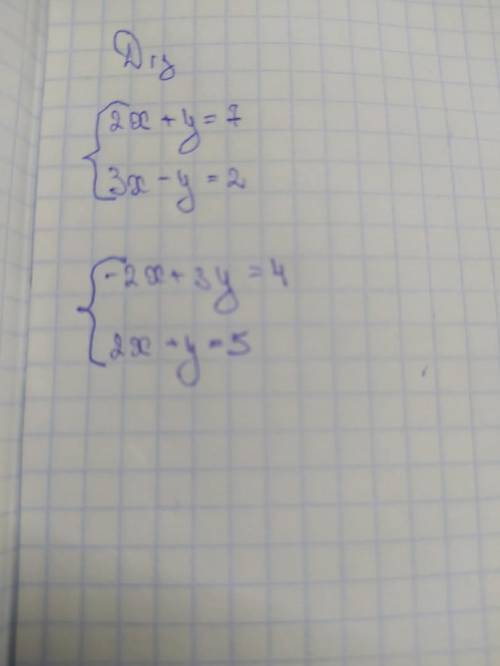 2x + y = 7
3x - y = 2
-2x + 3y = 4
2x + y = 5